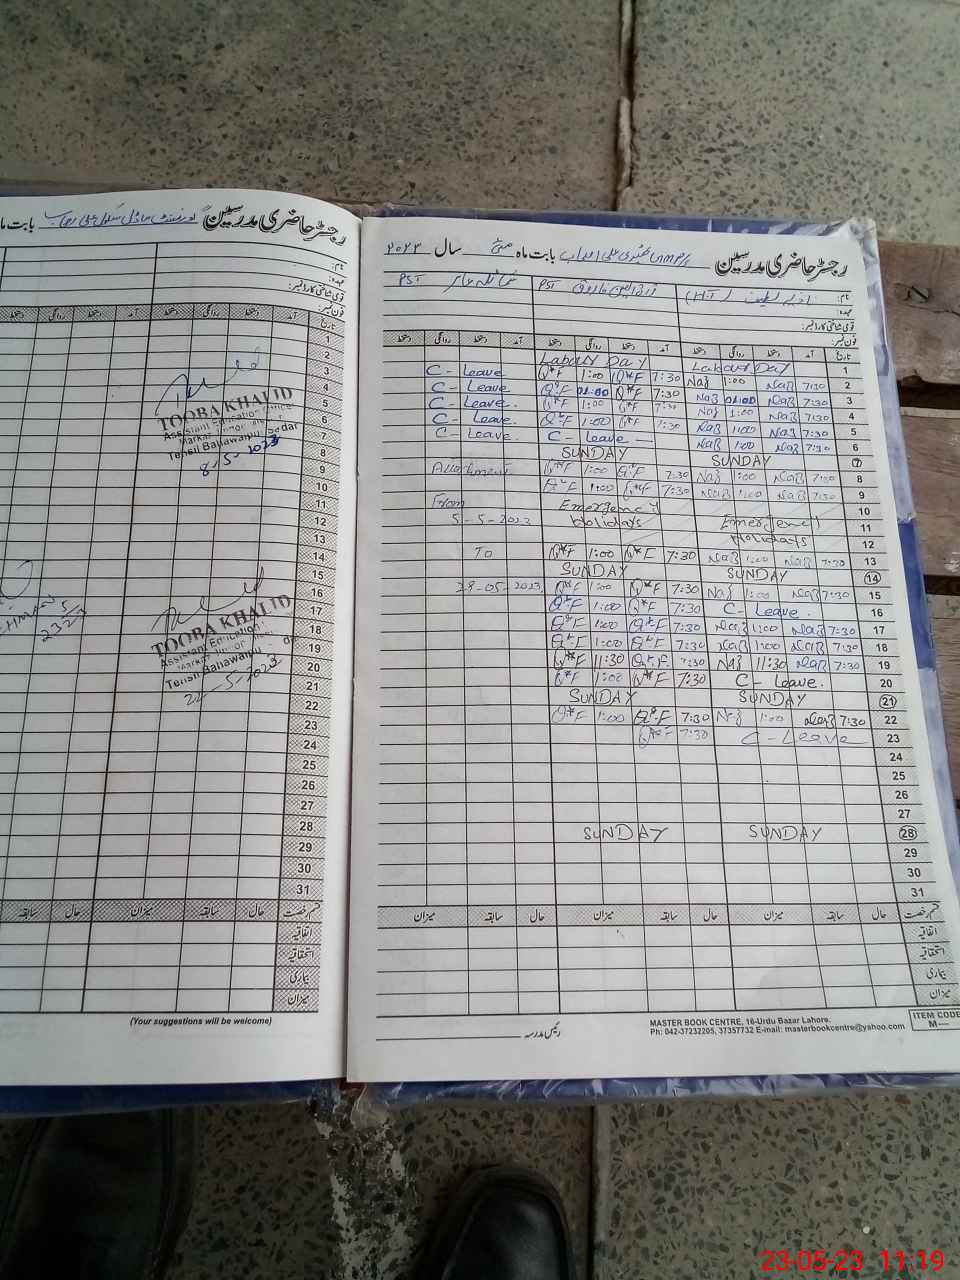 رجسٹر حاضری مدرسین
بابت ماہ
نام:
قومی شناختی کارڈ نمبر:
فون نمبر:
تاریخ آمد دستخط روانگی دستخط آمد دستخط روانگی
1
2
3
4
5
6
7
8
9
10
11
12
13
14
15
16
17
18
19
20
21
22
23
24
25
26
27
28
29
30
31
TOOBA KHALID
Assistant Education Officer
Tehsil Bahawalpur Sadar
8-5-2023
TOOBA KHALID
Assistant Education
Tehsil Bahawalpur
24-5-2023
قسم رخصت حال سابقہ میزان حال سابقہ
اتفاقیہ
استحقاقیہ
بیماری
میزان
(Your suggestions will be welcome)
رجسٹر حاضری مدرسین بابت ماہ مئی سال ۲۰۲۳
نام: (HT) PST PST
عہدہ:
قومی شناختی کارڈ نمبر:
فون نمبر:
تاریخ آمد دستخط روانگی دستخط آمد دستخط روانگی دستخط آمد دستخط روانگی دستخط
Labour Day Labour Day 1
C - Leave Q*F 1:00 Q*F 7:30 Naz 1:00 Naz 7:30 2
C - Leave Q*F 01:00 Q*F 7:30 Naz 01:00 Naz 7:30 3
C - Leave. Q*F 1:00 Q*F 7:30 Naz 1:00 Naz 7:30 4
C - Leave. Q*F 1:00 Q*F 7:30 Naz 1:00 Naz 7:30 5
C - Leave. C - Leave Naz 1:00 Naz 7:30 6
SUNDAY SUNDAY 7
Q*F 1:00 Q*F 7:30 Naz 1:00 Naz 7:30 8
Q*F 1:00 Q*F 7:30 Naz 1:00 Naz 7:30 9
From Emergency 10
5-5-2023 Holidays Emergency 11
Holidays 12
TO Q*F 1:00 Q*F 7:30 Naz 1:00 Naz 7:30 13
SUNDAY SUNDAY 14
29-05-2023 Q*F 1:00 Q*F 7:30 Naz 1:00 Naz 7:30 15
Q*F 1:00 Q*F 7:30 C - Leave. 16
Q*F 1:00 Q*F 7:30 Naz 1:00 Naz 7:30 17
Q*F 1:00 Q*F 7:30 Naz 1:00 Naz 7:30 18
Q*F 11:30 Q*F 7:30 Naz 11:30 Naz 7:30 19
Q*F 1:00 Q*F 7:30 C - Leave. 20
SUNDAY SUNDAY 21
Q*F 1:00 Q*F 7:30 Naz 1:00 Naz 7:30 22
Q*F 7:30 C - Leave 23
24
25
26
27
SUNDAY SUNDAY 28
29
30
31
قسم رخصت حال سابقہ میزان حال سابقہ میزان حال سابقہ میزان
اتفاقیہ
استحقاقیہ
بیماری
میزان
رئیس مدرسہ
MASTER BOOK CENTRE, 16-Urdu Bazar Lahore.
Ph: 042-37232205, 37357732 E-mail: masterbookcentre@yahoo.com
ITEM CODE
M—
23-05-23 11:19